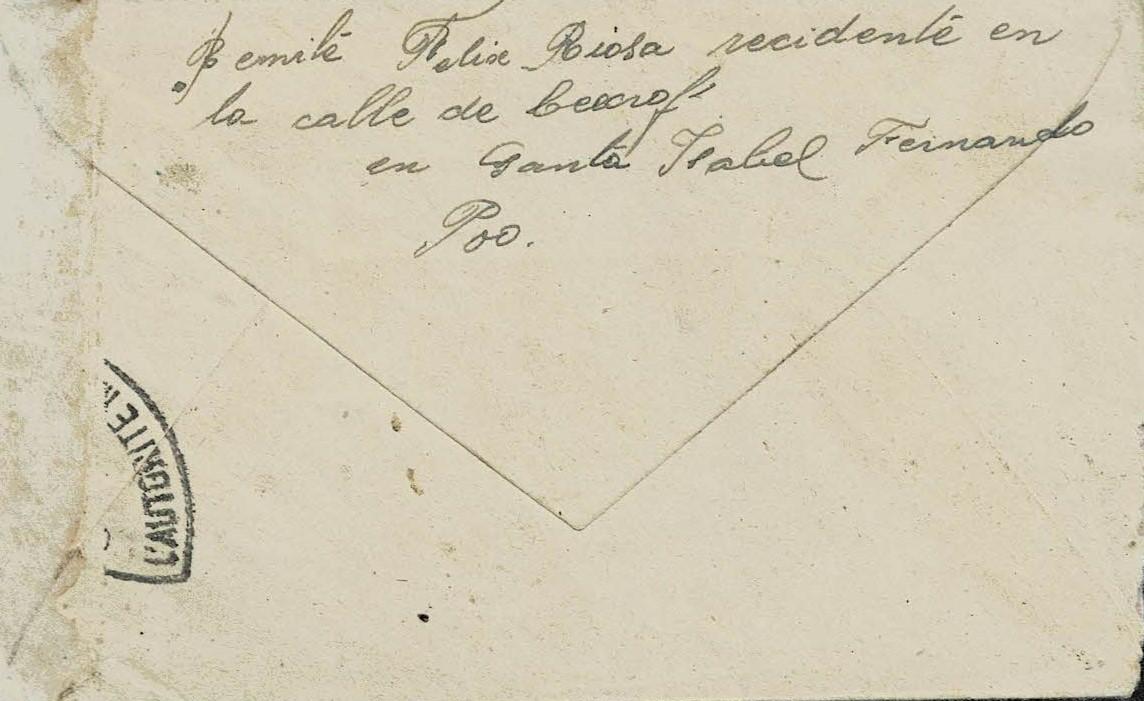 Remité Felix Riosa recidenté en
la calle de
en Santa Isabel Fernando
Poo.
L'AUTORITE